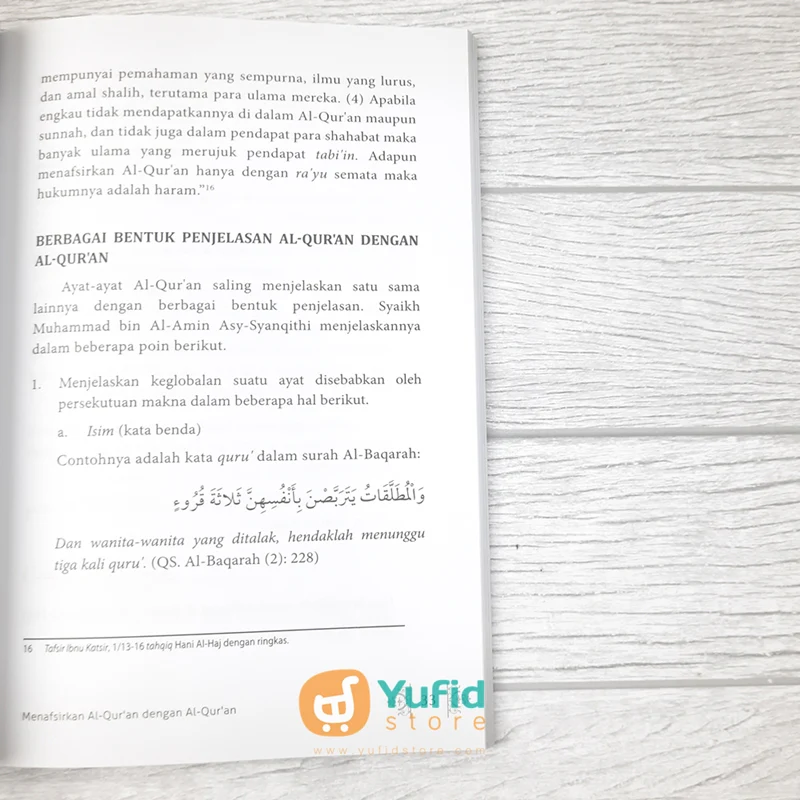 mempunyai pemahaman yang sempurna, ilmu yang lurus,
dan amal shalih, terutama para ulama mereka. (4) Apabila
engkau tidak mendapatkannya di dalam Al-Qur'an maupun
sunnah, dan tidak juga dalam pendapat para shahabat maka
banyak ulama yang merujuk pendapat tabi'in. Adapun
menafsirkan Al-Qur'an hanya dengan ra'yu semata maka
hukumnya adalah haram."16
BERBAGAI BENTUK PENJELASAN AL-QUR'AN DENGAN
AL-QUR'AN
Ayat-ayat Al-Qur'an saling menjelaskan satu sama
lainnya dengan berbagai bentuk penjelasan. Syaikh
Muhammad bin Al-Amin Asy-Syanqithi menjelaskannya
dalam beberapa poin berikut.
1. Menjelaskan keglobalan suatu ayat disebabkan oleh
persekutuan makna dalam beberapa hal berikut.
a. Isim (kata benda)
Contohnya adalah kata quru' dalam surah Al-Baqarah:
وَالْمُطَلَّقَاتُ يَتَرَبَّصْنَ بِأَنْفُسِهِنَّ ثَلَاثَةَ قُرُوءٍ
Dan wanita-wanita yang ditalak, hendaklah menunggu
tiga kali quru'. (QS. Al-Baqarah (2): 228)
16 Tafsir Ibnu Katsir, 1/13-16 tahqiq Hani Al-Haj dengan ringkas.
Menafsirkan Al-Qur'an dengan Al-Qur'an
Yufid
store
www.yufidstore.com